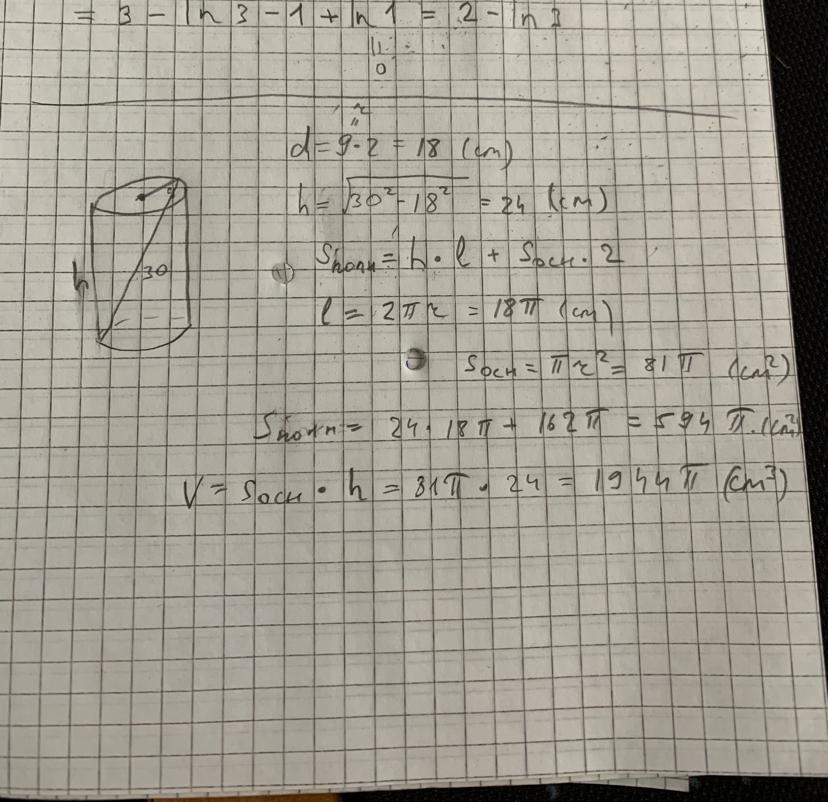 = 3 - ln 3 - 1 + ln 1 = 2 - ln 3
||
0
r
"
d = 9·2 = 18 (cm)
h = √30² - 18² = 24 (cm)
h
30
Sполн = h · l + Sосн · 2
l = 2πr = 18π (cm)
Sосн = πr² = 81π (cm²)
Sполн = 24 · 18π + 162π = 594π (cm²)
V = Sосн · h = 81π · 24 = 1944π (cm³)